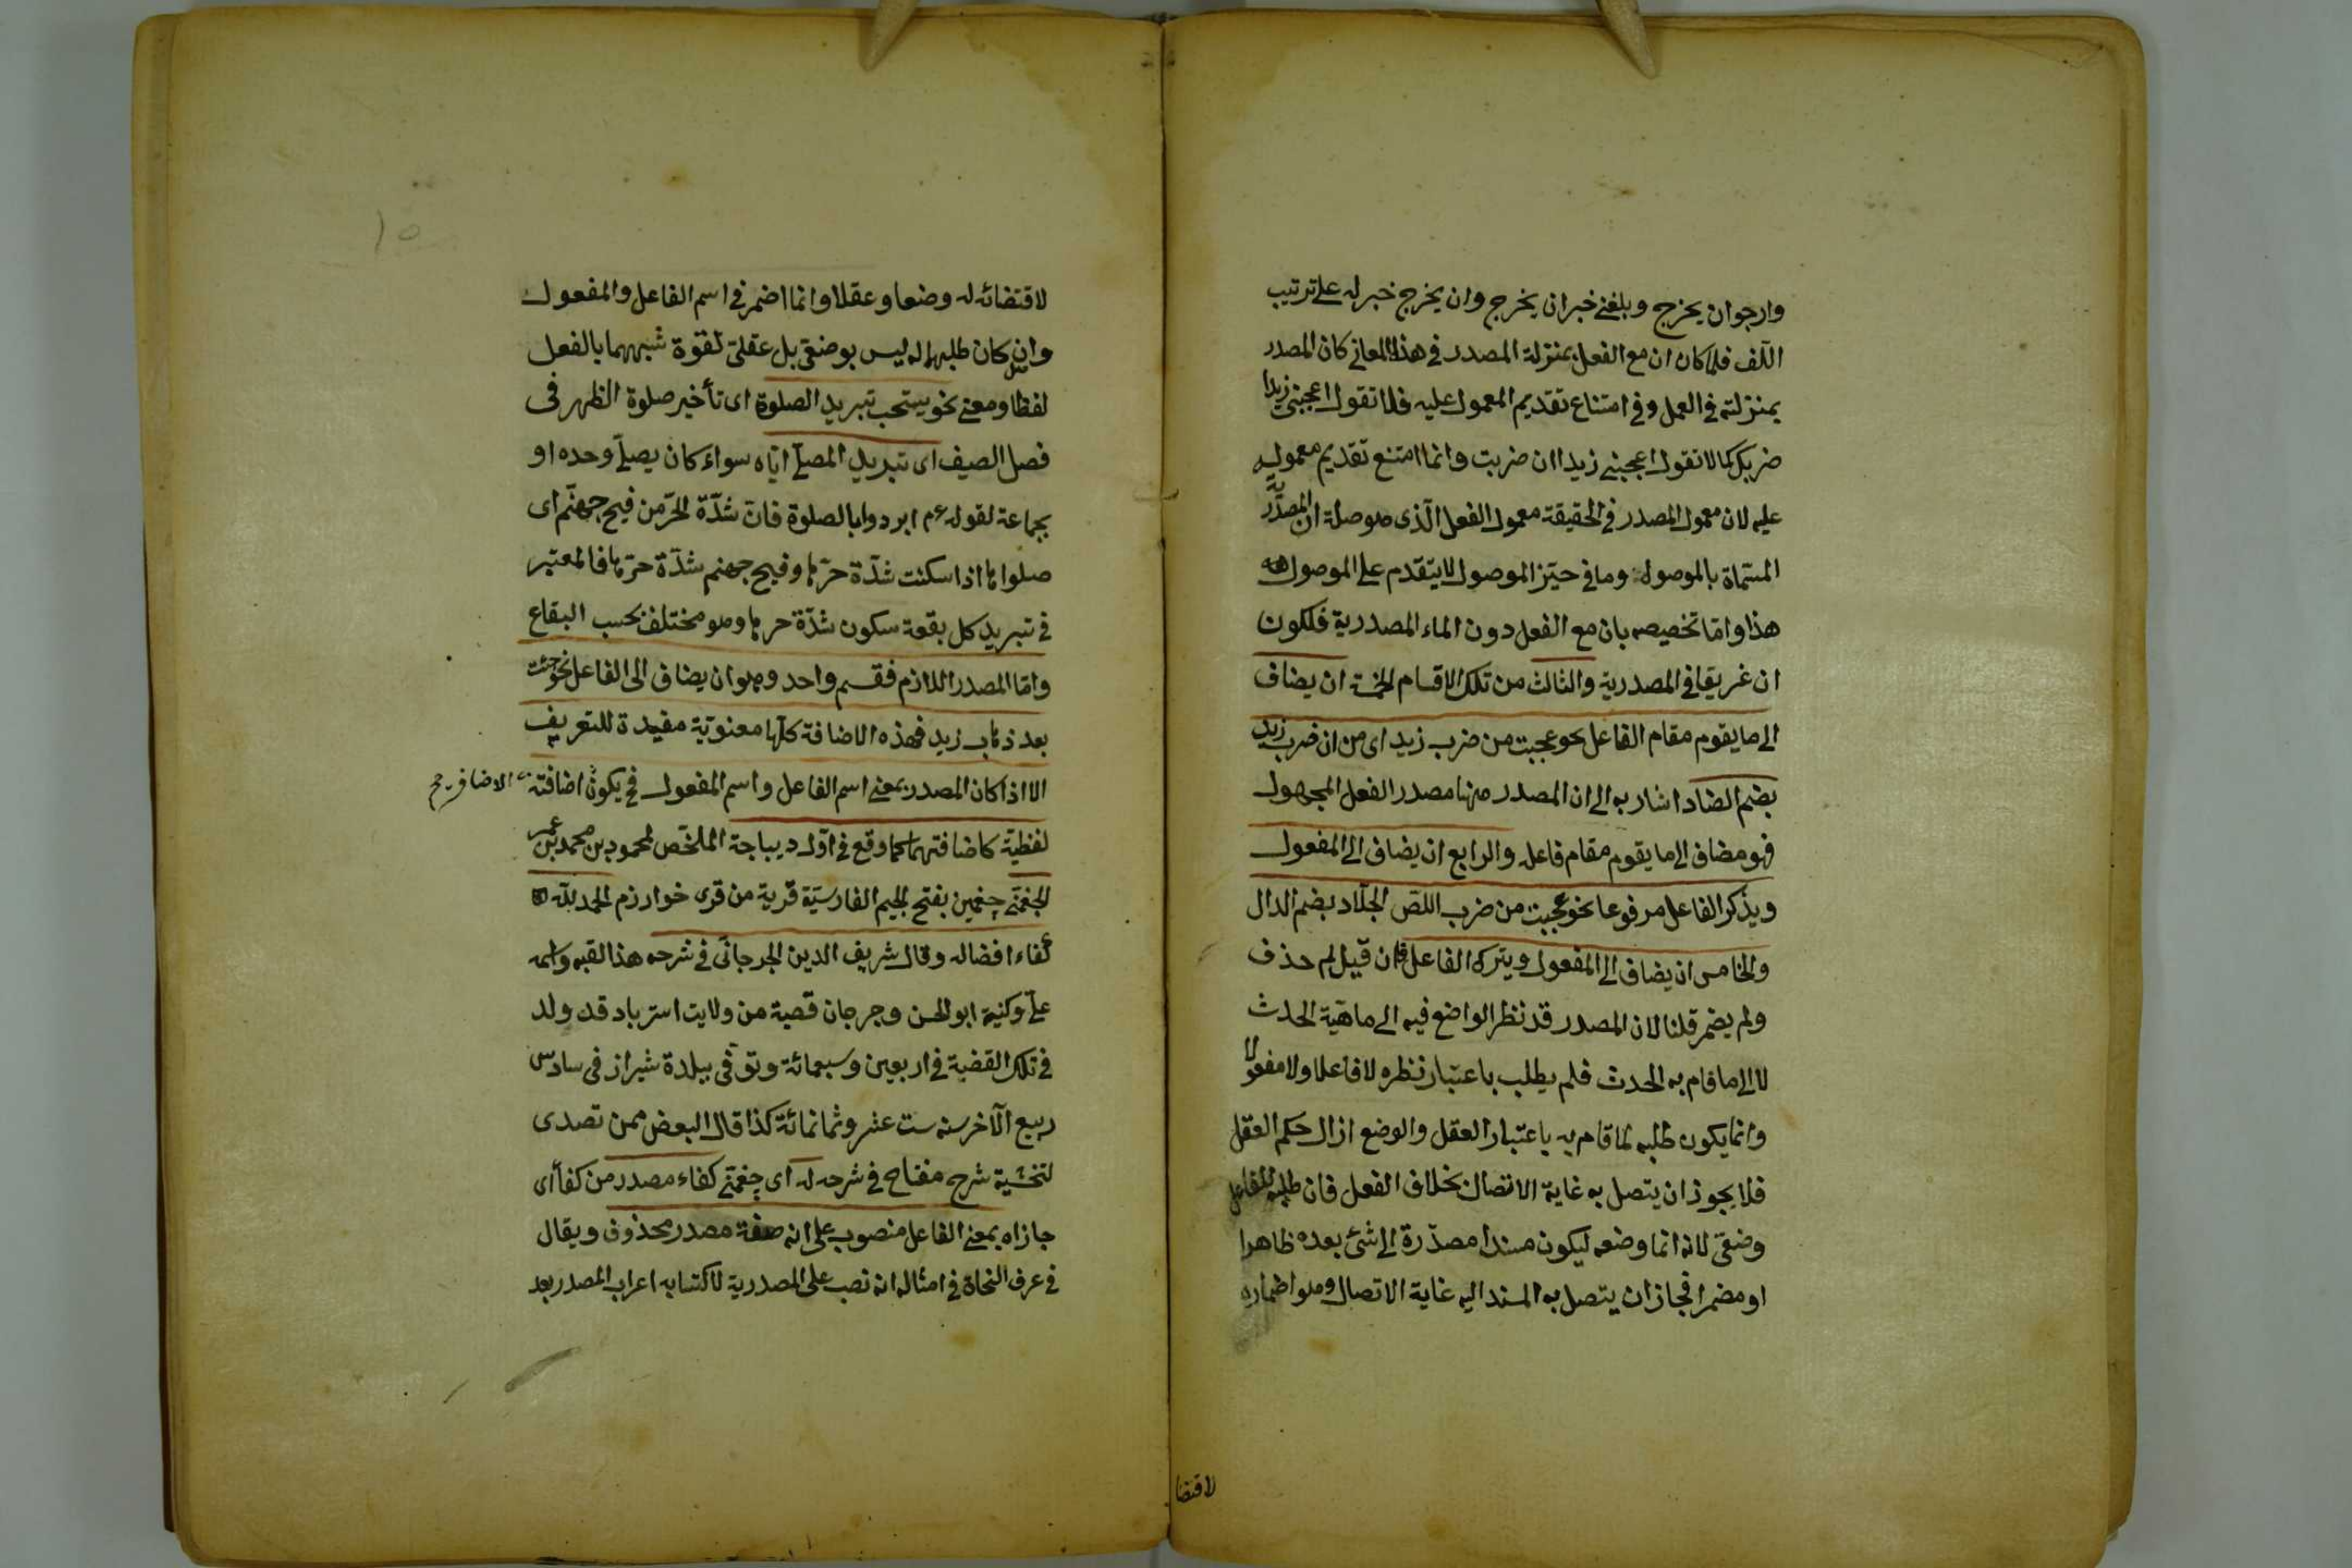 وارجوان يخرج وبلغنى خبر ان يخرج وان يخرج خبر له على ترتيب
اللف فلما كان ان مع الفعل بمنزلة المصدر في هذا المعانى كان المصدر
بمنزلته في العمل وفي امتناع تقديم المعمول عليه فلا تقول اعجبنى زيدا
ضربك كما لا تقول اعجبنى زيدا ان ضربت وانما امتنع تقديم معموله
عليه لان معمول المصدر في الحقيقة معمول الفعل الذى هو صلة ان المصدرية
المسماة بالموصول وما في حيز الموصول لا يتقدم على الموصول
هذا واما تخصيصه بان مع الفعل دون الماء المصدرية فلكون
ان غريقا في المصدرية والثالث من تلك الاقسام الخمسة ان يضاف
الى ما يقوم مقام الفاعل نحو عجبت من ضرب زيد اى من ان ضرب زيد
بضم الضاد اشار به الى ان المصدر منها مصدر الفعل المجهول
فهو مضاف الى ما يقوم مقام فاعله والرابع ان يضاف الى المفعول
ويذكر الفاعل مرفوعا نحو عجبت من ضرب اللص الجلاد بضم الدال
والخامس ان يضاف الى المفعول ويترك الفاعل فان قيل لم حذف
ولم يضمر قلنا لان المصدر قد نظر الواضع فيه الى ماهية الحدث
لا الى ما قام به الحدث فلم يطلب باعتبار نظره لا فاعلا ولا مفعولا
وانما يكون طلبه لما قام به باعتبار العقل والوضع ازال حكم العقل
فلا يجوز ان يتصل به غاية الاتصال بخلاف الفعل فان طلبه للفاعل
وضعى لانه انما وضعه ليكون مسندا مصدرة الى شئ بعده ظاهرا
او مضمرا فجاز ان يتصل به المسند اليه غاية الاتصال وهو اضماره
لاقتضا
لاقتضائه له وضعا وعقلا وانما اضمر في اسم الفاعل والمفعول
وان كان طلبهما له ليس بوضعى بل عقلى لقوة شبههما بالفعل
لفظا ومعنى نحو يستحب تبريد الصلوة اى تأخير صلوة الظهر فى
فصل الصيف اى تبريد المصلى اياه سواء كان يصلى وحده او
بجماعة لقوله عم ابردوا بالصلوة فان شدة الحر من فيح جهنم اى
صلوا ها اذا سكنت شدة حرها وفيح جهنم شدة حرها فالمعتبر
فى تبريد كل بقعة سكون شدة حرها وهو مختلف بحسب البقاع
واما المصدر اللازم فقسم واحد وهو ان يضاف الى الفاعل نحو جئت
بعد ذهاب زيد فهذه الاضافة كلها معنوية مفيدة للتعريف
الا اذا كان المصدر بمعنى اسم الفاعل واسم المفعول فح يكون اضافته
لفظية كاضافتهما كما وقع فى اول ديباجة الملخص لمحمود بن محمد بن عمر
الجغمنى چغمين بفتح الجيم الفارسية قرية من قرى خوارزم الحمد لله
كفاء افضاله وقال شريف الدين الجرجانى فى شرحه هذا لقبه واسمه
على وكنيته ابو الحسن وجرجان قصبة من ولايت استرباد قد ولد
فى تلك القضبة فى اربعين وسبعمائة وتوفى ببلدة شيراز فى سادس
ربيع الآخر سنه ست عشر وثمانمائة كذا قال البعض ممن تصدى
لتحشية شرح مفتاح فى شرحه له اى چغمنى كفاء مصدر من كفأ اى
جازاه بمعنى الفاعل منصوب على انه صفة مصدر محذوف ويقال
فى عرف النحاة فى امثاله انه نصب على المصدرية لاكتسابه اعراب المصدر بعد